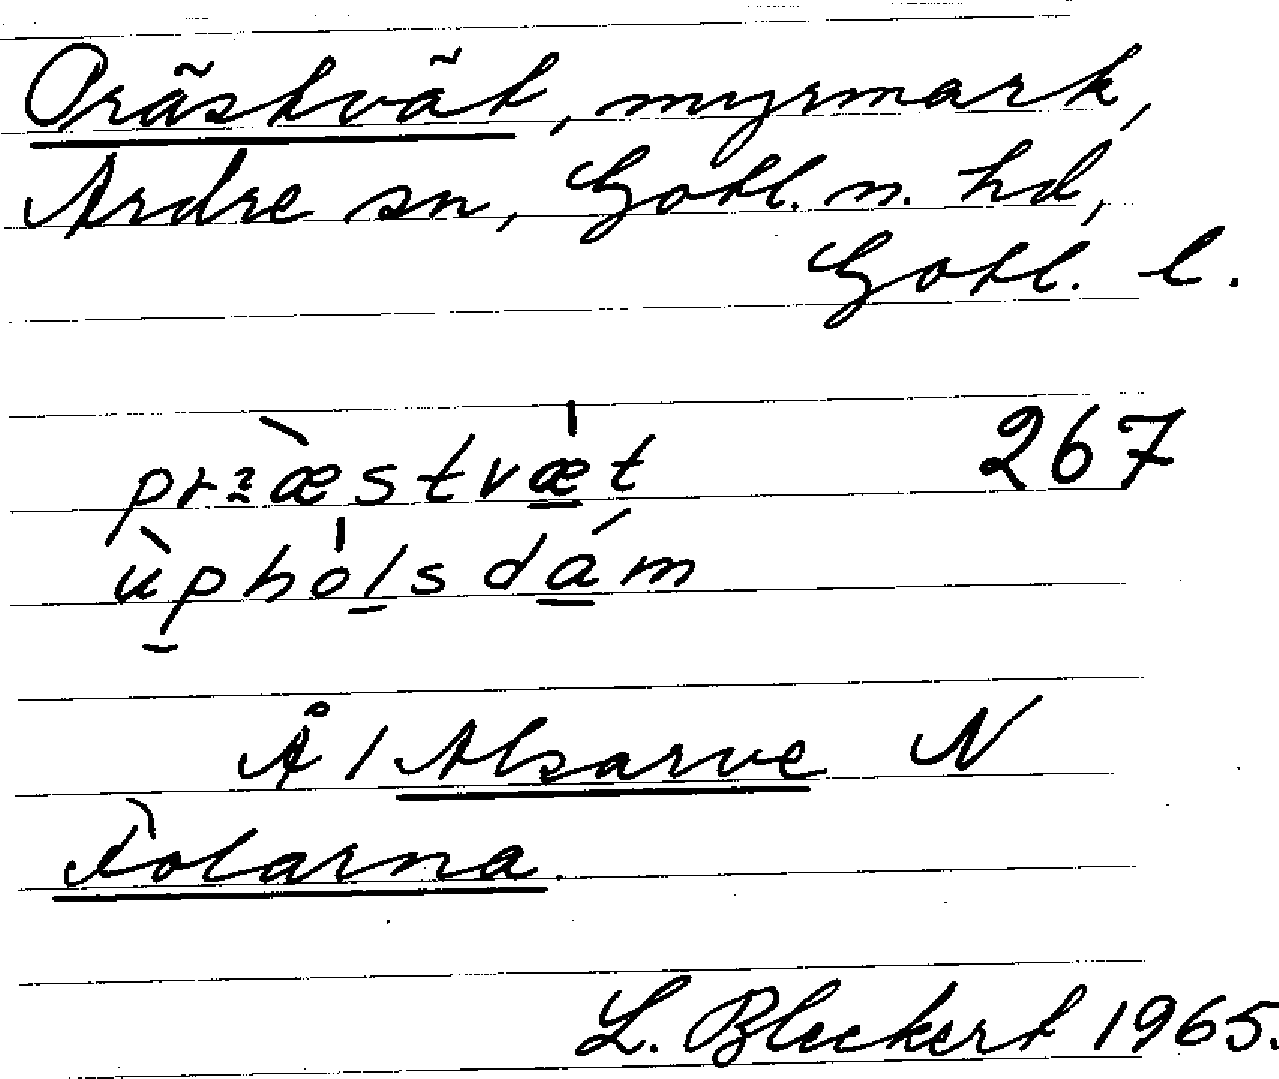 Prästvät, myrmark,
Ardre sn, Gotl. n. hd,
Gotl. l.
præstvæt 267
ùphòlsdám
Å / Alsarve N
Tolarna.
L. Bleckert 1965.